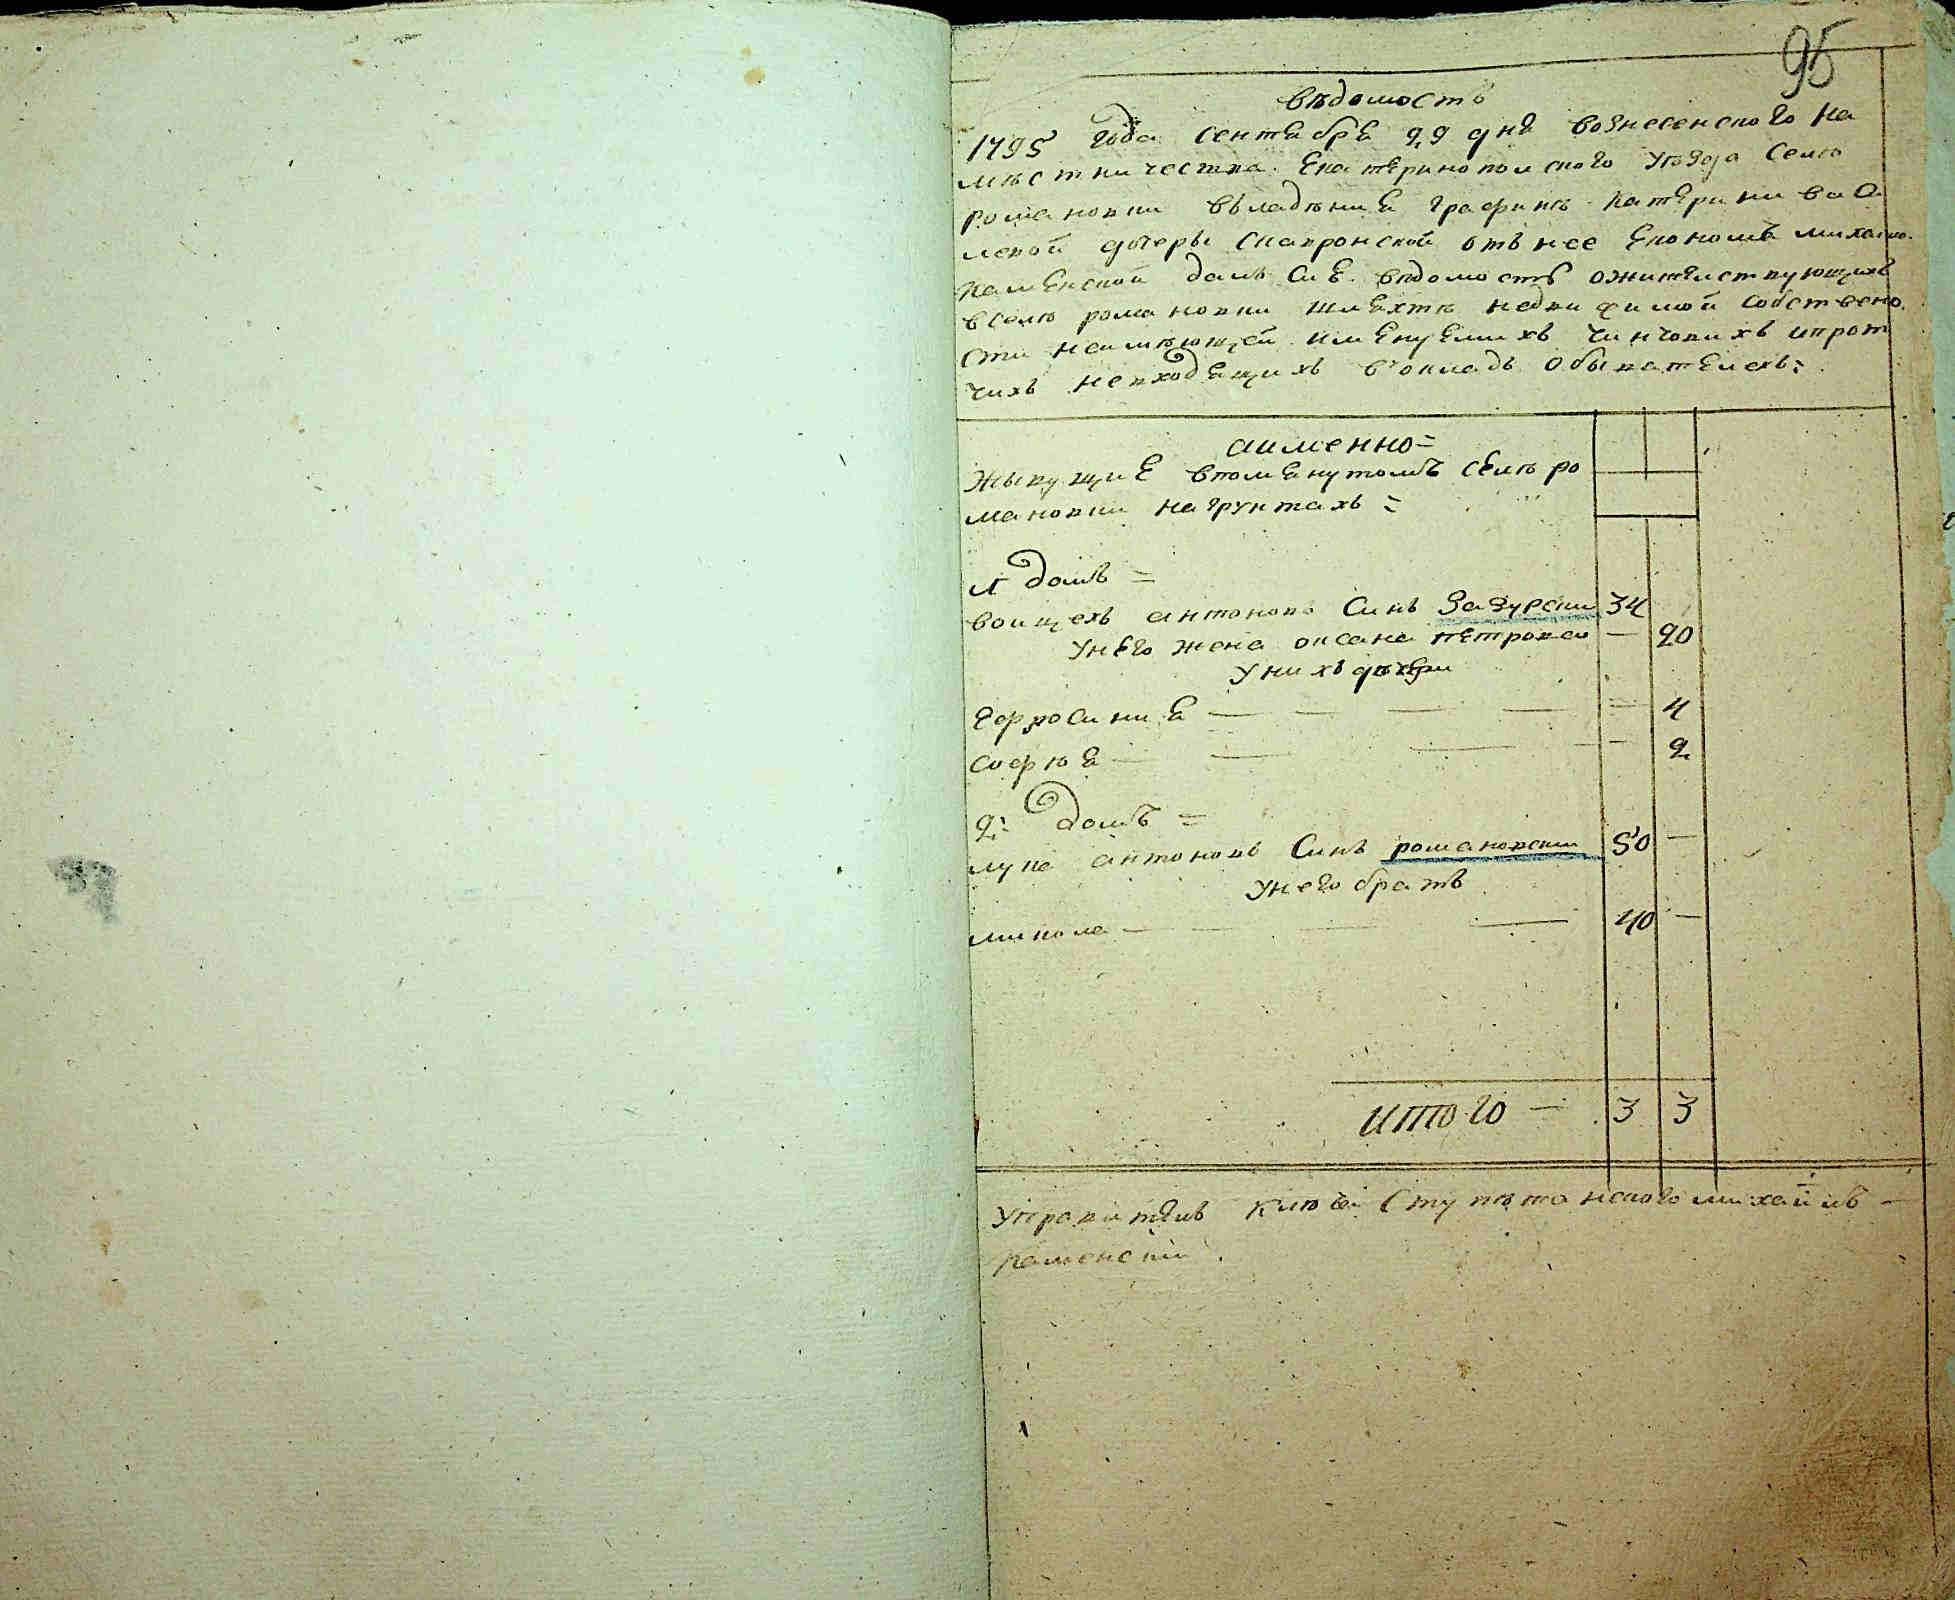 95
вѣдомость
1795 года сентября 29 дня вознесенского на
мѣстничества Екатеринополского уѣзда Селѣ
романовки вьладѣния графинѣ катерини васи
левой дочеры скавронской отъ нее Економъ михайло
каменской далъ Сию ведомость ожителствующихъ
вселѣ романовки шляхтѣ недви жимой собствено
сти неимѣющей именуемихъ чиншовихъ ипрот
чихъ невходящихъ въокладъ обывателехъ:
аименно=
Жывущие впомянутомъ селѣ ро
мановки нагрунтахъ =
1 домъ =
воищехъ антоновъ Синъ Зазурски 34
Унего жена оксана петрова — 20
У нихъ дочери
Ефросиния — — — — — 4
софѣя — — — — 2
2: домъ =
лука антоновъ Синъ романовски 50 —
Унего братъ
микола — — — — 40 —
итого — 3 3
Управитель ключа Михайлъ —
каменски